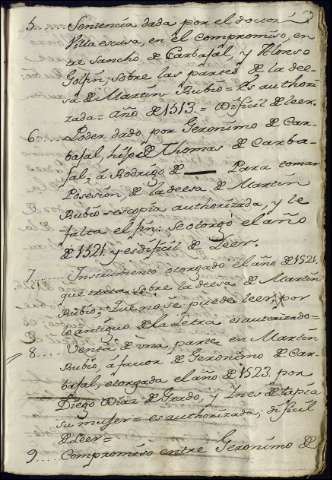 5. Sentencia dada por el doctor
Villaescusa, en el Compromiso, en
tre Sancho de Carbajal, y Alonso
Golfin, sobre las partes de la dee-
sa de Martin Rubio = Es authori-
zada = año de 1513 = Dificil de leer.
6. Poder dado, por Geronimo de Car-
bajal, hijo de Thomas de Carba-
jal, á Rodrigo de — Para tomar
Posesión, de la deesa de Martin
Rubio = es copia authorizada, y le
falta el fin: Se otorgó el año
de 1521 y es dificil de Leer.
7.... Instrumento otorgado el año de 1521.
que trata sobre la deesa de Martin
Rubio; Que no se puede leer, por
lo antiguo de la Letra es autorizado =
8.... Venta de una parte en Martin
Rubio, á favor de Geronimo de Car-
bajal, otorgada el año de 1523, por
Diego Diaz de, y Ynes de Tapia
su muger = es authorizada; dificil
de Leer =
9.... Compromiso entre Geronimo de